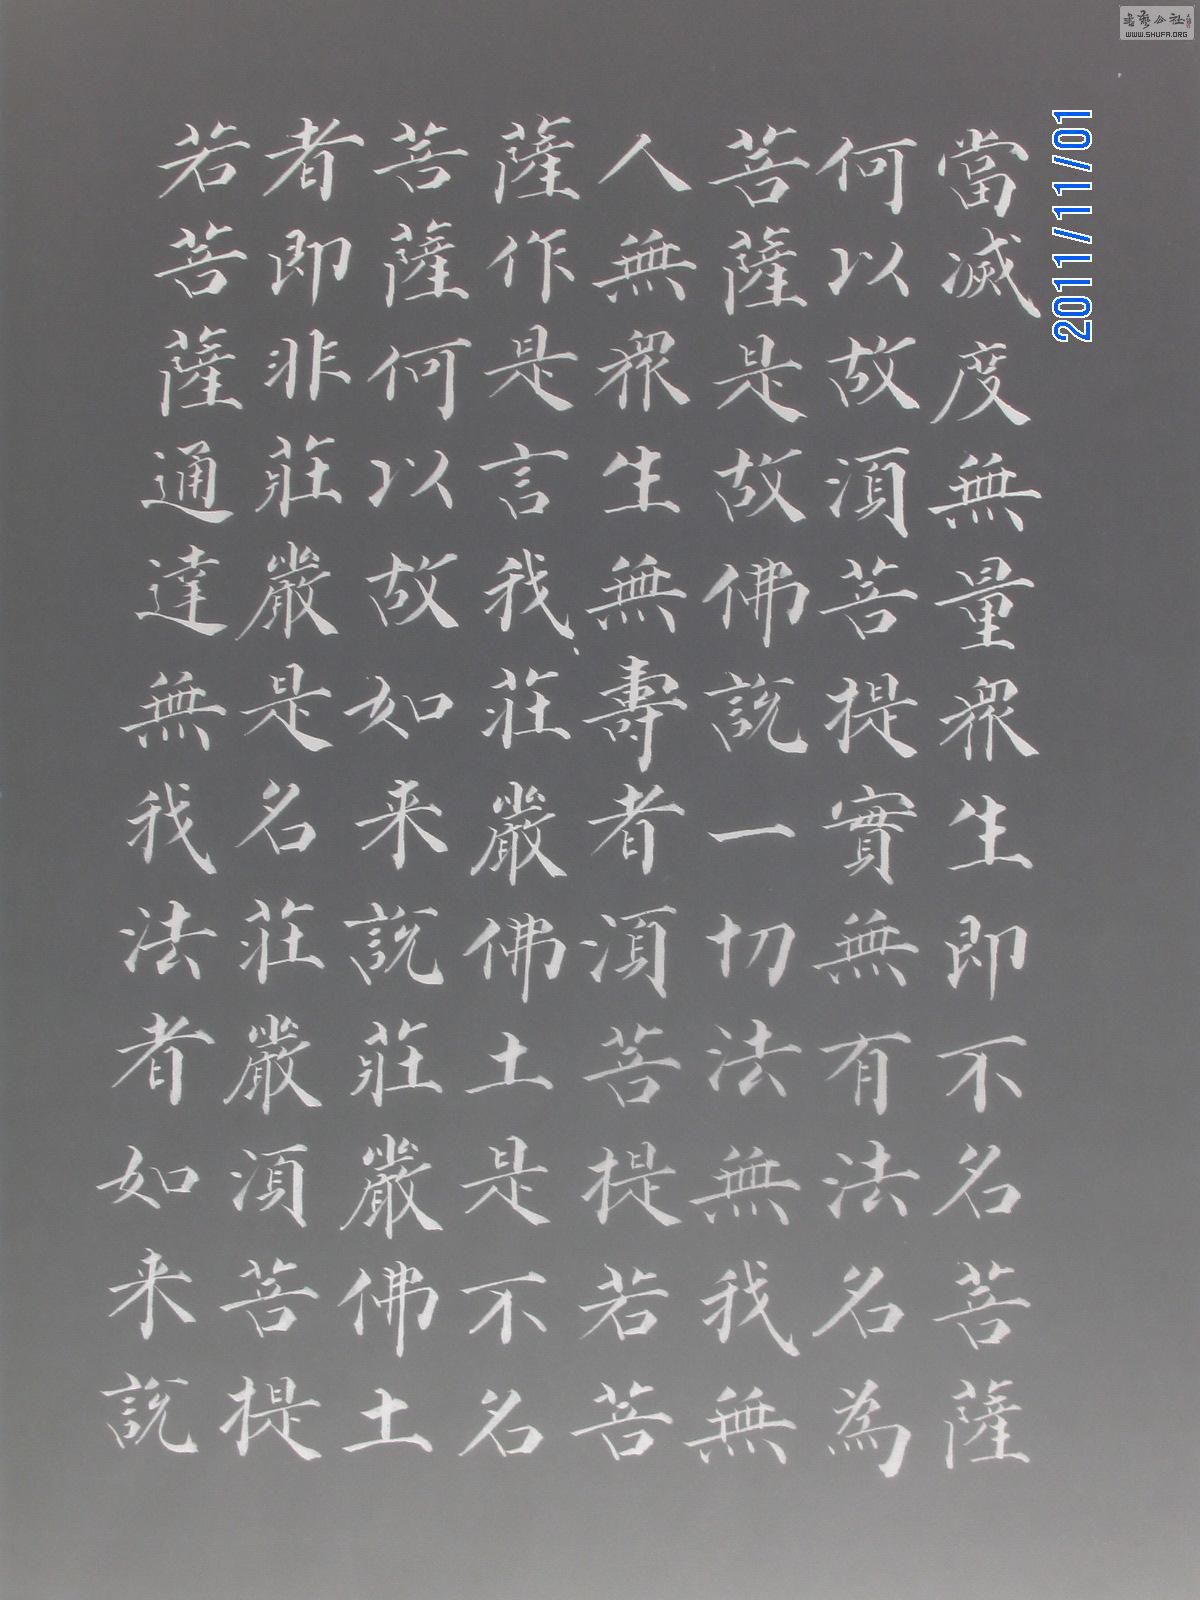 當滅度無量眾生即不名菩薩
何以故須菩提實無有法名為
菩薩是故佛說一切法無我無
人無眾生無壽者須菩提若菩
薩作是言我莊嚴佛土是不名
菩薩何以故如来說莊嚴佛土
者即非莊嚴是名莊嚴須菩提
若菩薩通達無我法者如来說
2011/11/01
WWW.SHUFA.ORG